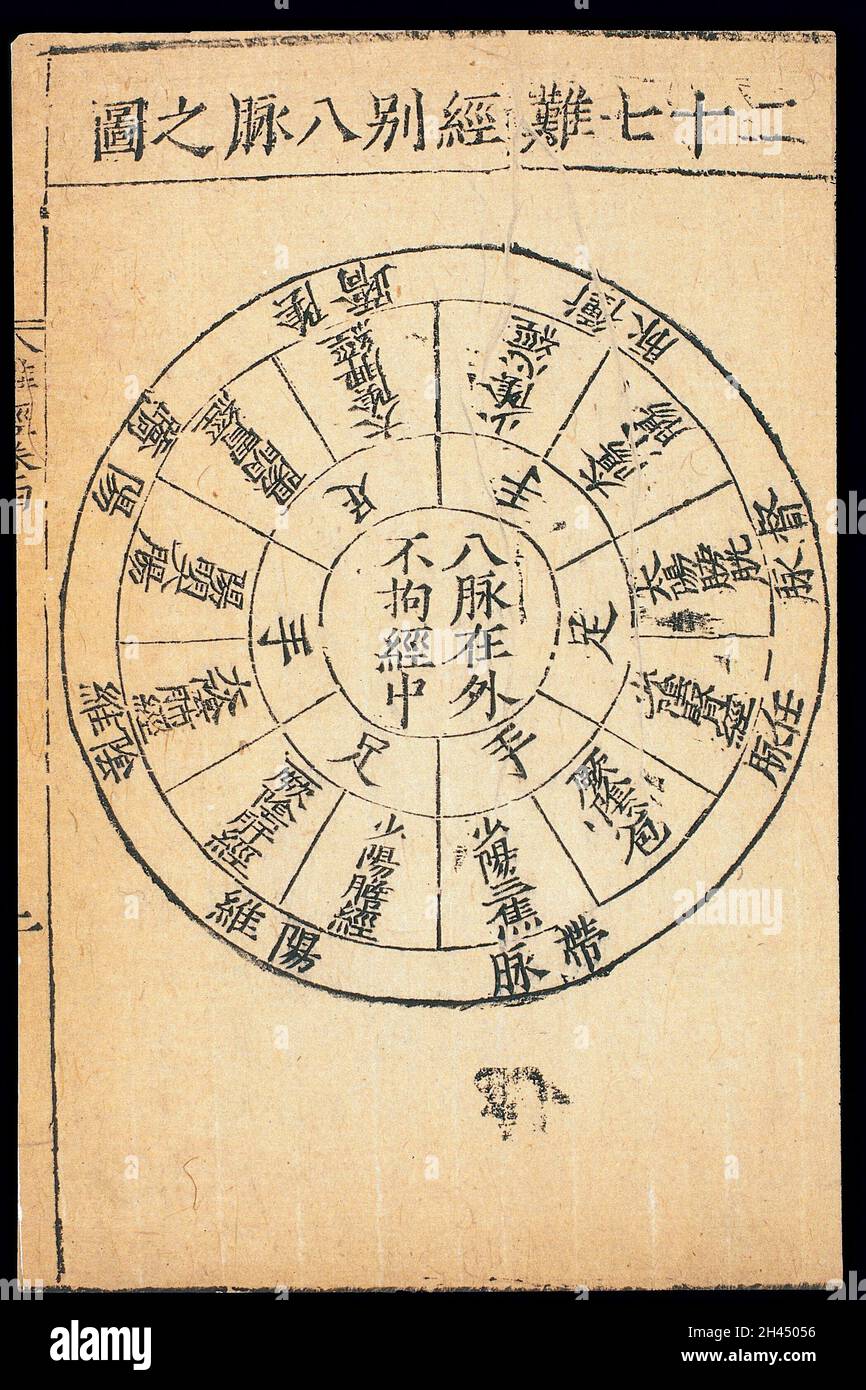 二十七難經別八脉之圖
八脉在外
不拘經中
手
足
手
足
手
足
少陰心經
太陽小腸
太陽膀胱
少陰腎經
厥陰心包
少陽三焦
少陽膽經
厥陰肝經
太陰肺經
陽明大腸
陽明胃經
太陰脾經
衝脉
督脉
任脉
帶脉
陽維
陰維
陽蹻
陰蹻
alamy
alamy
Image ID: 2H45056
www.alamy.com